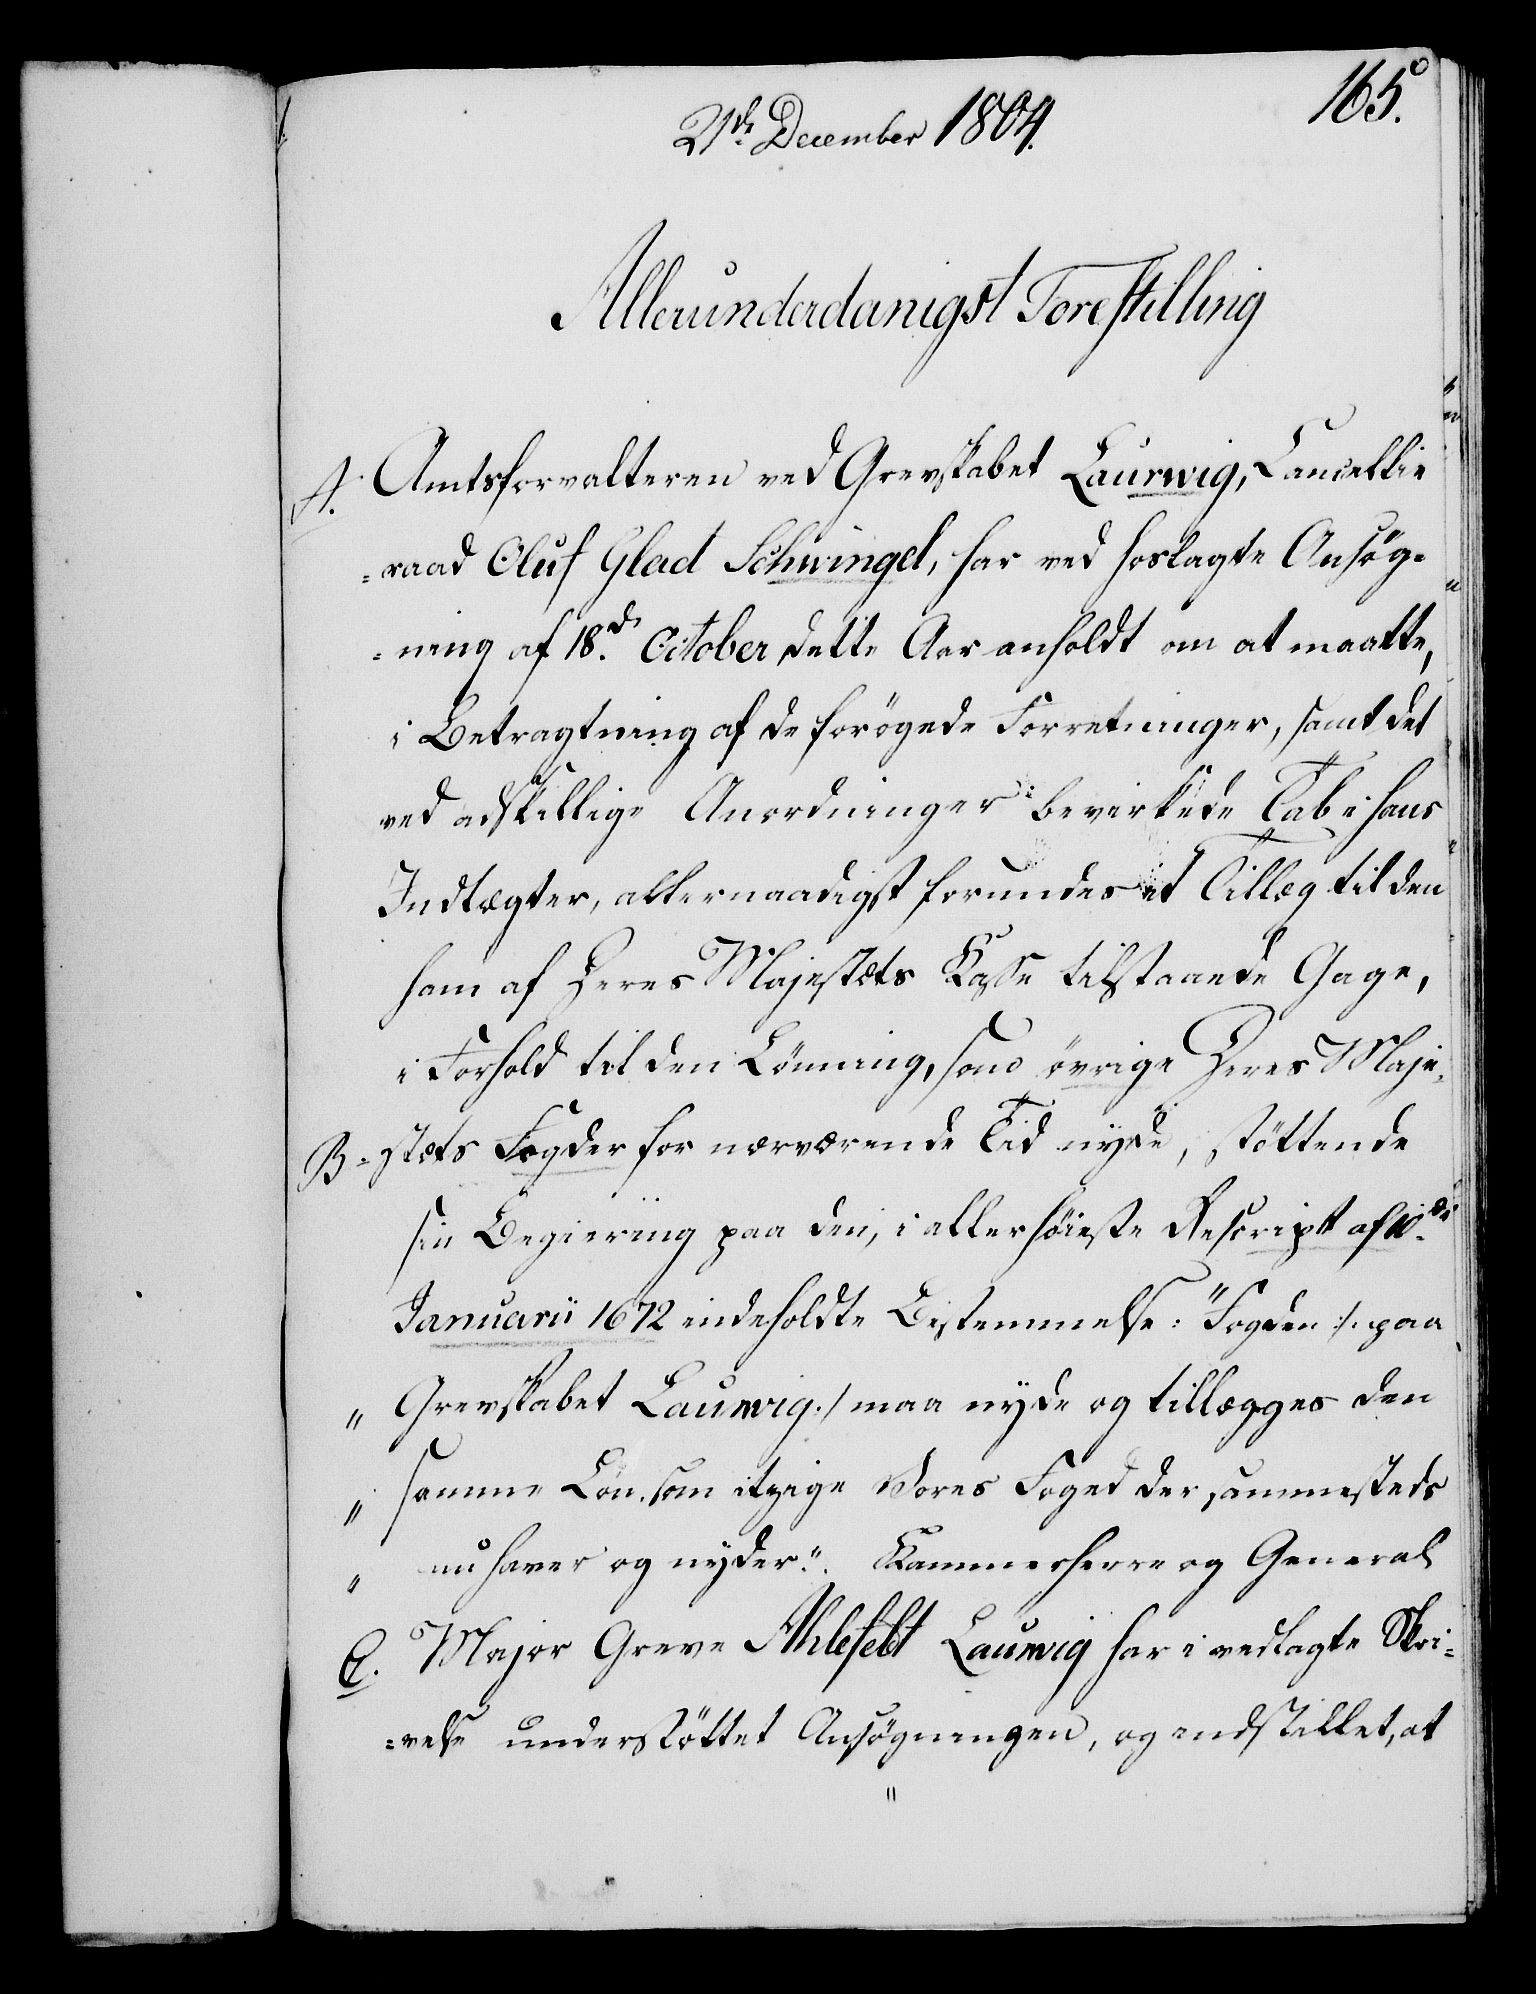 165.
21de December 1804.
Allerunderdanigst Forestilling
A. Amtsforvalteren ved Grevskabet Laurwig, Cancellie
=raad Oluf Glad Schwingel, har ved hoslagte Ansøg=
=ning af 18d October dette Aar anholdt om at maatte,
i Betragtning af de forögede Forretninger, samt det
ved adskillige Anordninger bevirkede Tab i hans
Indtægter, allernaadigst forundes et Tillæg til den
ham af Deres Majestæts Kasse tilstaaede Gage,
i Forhold til den Lönning, som övrige Deres Maje=
B =stæts Fogder for nærværende Tid nyde, stöttende
sin Begiering paa den, i allerhöieste Rescript af 10de
Januarii 1672 indeholdte Bestemmelse: "Fogden /: paa
" Grevskabet Laurwig :/ maa nyde og tillægges den
" samme Lön, som itzige Vores Foged der sammesteds
" nu haver og nyder". Kammerherre og General
C. Major Greve Ahlefeldt Laurwig har i vedlagte Skri=
=velse understöttet Ansögningen, og indstillet, at
"